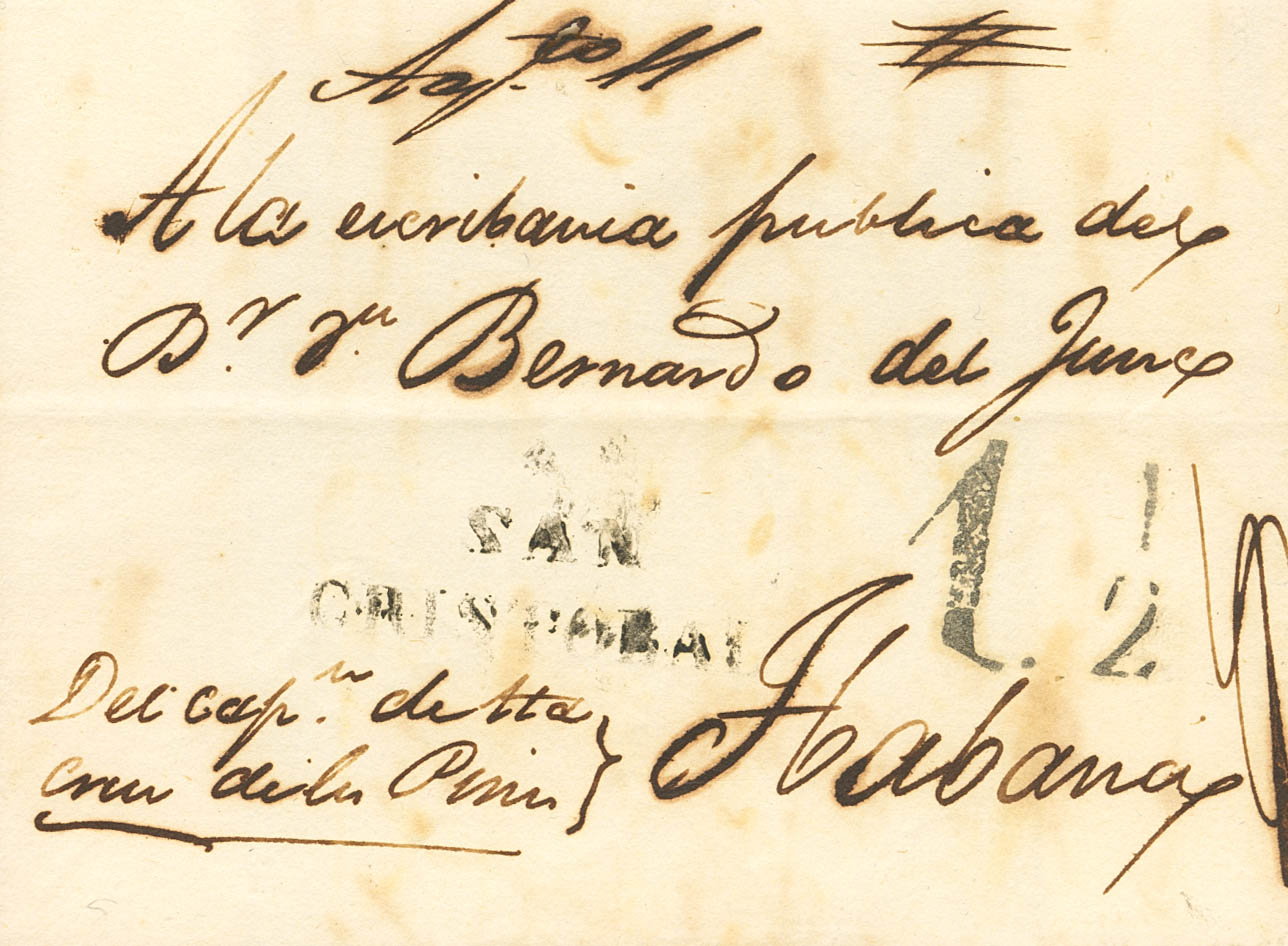 Ag.to 11
A la escribania publica del
D.r D.n Bernardo del Junco
SAN
CRISTOBAL
1. 1/2
Del cap.n de Sta
Cruz de los Pinos
Habana